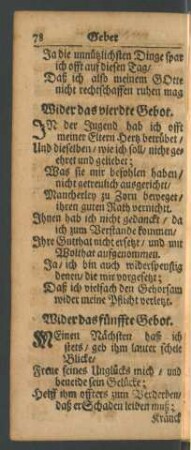 78 Gebet
Ja die unnützlichsten Dinge spar
ich offt auff diesen Tag/
Daß ich also meinem GOtte
nicht rechtschaffen ruhen mag
Wider das vierdte Gebot.
IN der Jugend hab ich offt
meiner Eltern Hertz betrübet/
Und dieselben/ wie ich soll/ nicht ge-
ehret und geliebet;
Was sie mir befohlen haben/
nicht getreulich ausgericht/
Mancherley zu Zorn beweget/
ihren guten Rath vernicht.
Ihnen hab ich nicht gedanckt/ da
ich zum Verstande kommen/
Ihre Gutthat nicht ersetzt/ und mit
Wolthat auffgenommen.
Ja/ ich bin auch widerspenstig
denen/ die mir vorgesetzt;
Daß ich vielfach den Gehorsam
wider meine Pflicht verletzt.
Wider das fünffte Gebot.
MEinen Nächsten haß ich
stets/ geb ihm lauter schele
Blicke/
Freue seines Unglücks mich/ und
beneide sein Gelücke;
Helff ihm öffters zum Verderben/
daß er Schaden leiden muß;
Kränck